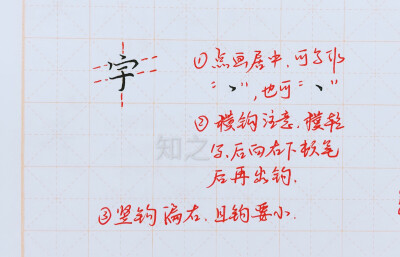 字
①点画居中,可写成
“丶”,也可“丶”
②横钩注意,横轻
写,后向右下顿笔
后再出钩.
③竖钩偏右,且钩要小.
知之